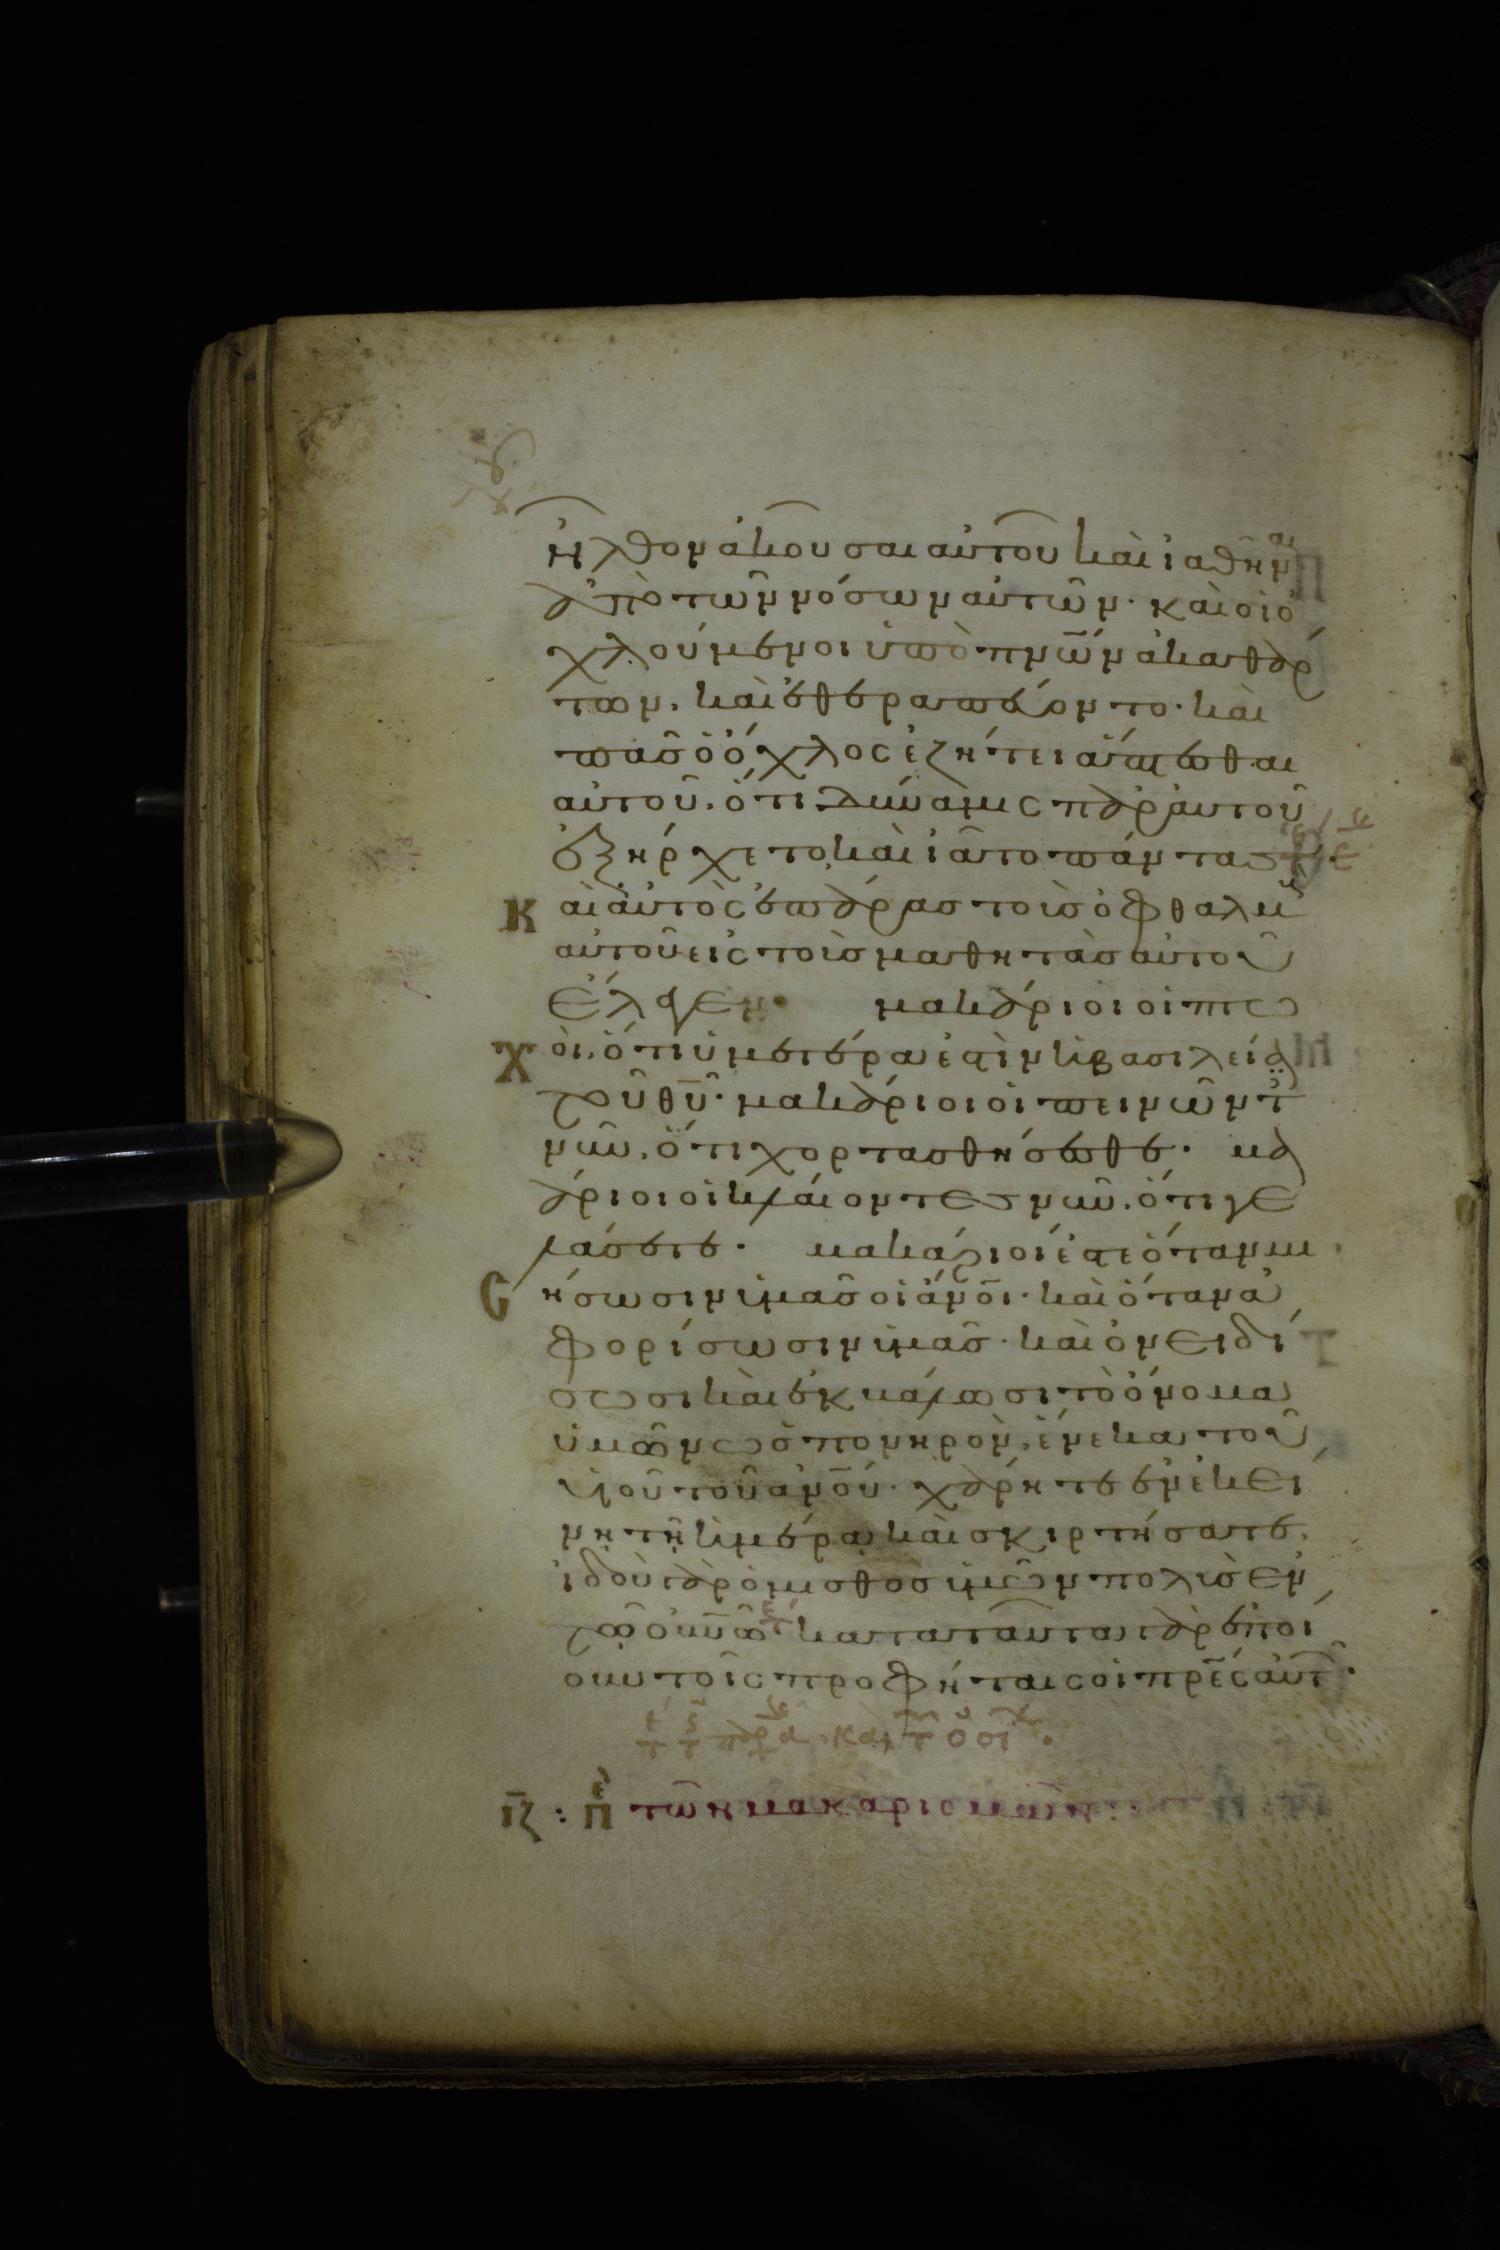 ἦλθον ἀκοῦσαι αὐτοῦ καὶ ἰαθῆναι
ἀπὸ τῶν νόσων αὐτῶν· καὶ οἱ ὀ
χλούμενοι ὑπὸ πν̅ων ἀκαθάρ
των, καὶ ἐθεραπεύοντο· καὶ
πᾶσ ὁ ὄχλος ἐζήτει ἅπτεσθαι
αὐτοῦ, ὅτι δύναμις παρ αὐτοῦ
ἐξήρχετο καὶ ἰᾶτο πάντασ·
Καὶ αὐτὸς ἐπάρας τοὺσ ὀφθαλμοὺ
αὐτοῦ εἰς τοὺσ μαθητὰσ αὐτοῦ
ἔλεγεν· μακάριοι οἱ πτω
Χοὶ, ὅτι ὑμετέρα ἐστὶν ἡ βασιλεία
τοῦ θυ̅· μακάριοι οἱ πεινῶντ
νῦν, ὅτι χορτασθήσεσθε· μα
κάριοι οἱ κλαίοντεσ νῦν, ὅτι γε
λάσετε· μακάριοί ἐστε ὅταν μι
Σήσωσιν ὑμᾶσ οἱ ἄν̅οι· καὶ ὅταν ἀ
φορίσωσιν ὑμᾶσ· καὶ ὀνειδί
σωσι καὶ ἐκβάλωσι τὸ ὄνομα
ὑμῶν ὡσ πονηρὸν, ἕνεκα τοῦ
υἱοῦ τοῦ ἀν̅ου· χάρητε ἐν ἐκεί
νῃ τῇ ἡμέρᾳ καὶ σκιρτήσατε,
ἰδοὺ γὰρ ὁ μισθὸσ ὑμῶν πολὺσ ἐν
τῷ οὐν̅ῶ· κατὰ ταῦτα γὰρ ἐποί
ουν τοῖς προφήταις οἱ πρ̅ες αὐτ·
ιζ : π τῶν μακαρισμῶν :